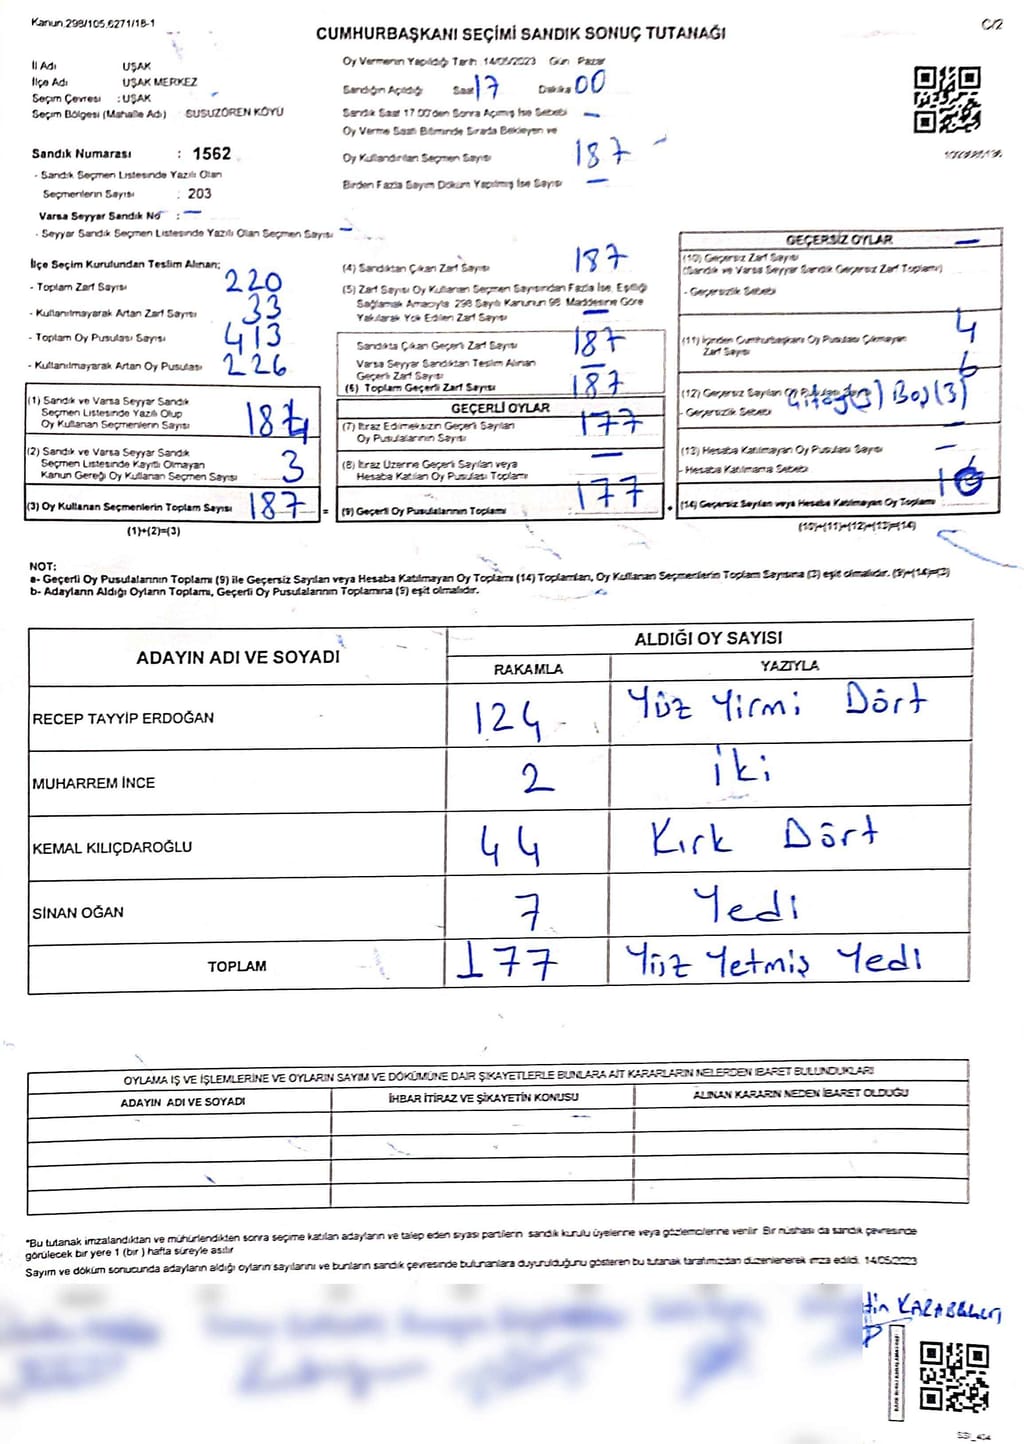 Kanun.298/105,6271/18-1
C/2
CUMHURBAŞKANI SEÇİMİ SANDIK SONUÇ TUTANAĞI
İl Adı UŞAK
İlçe Adı UŞAK MERKEZ
Seçim Çevresi : UŞAK
Seçim Bölgesi (Mahalle Adı) SUSUZÖREN KÖYÜ
Sandık Numarası : 1562
- Sandık Seçmen Listesinde Yazılı Olan
Seçmenlerin Sayısı : 203
Varsa Seyyar Sandık No : —
- Seyyar Sandık Seçmen Listesinde Yazılı Olan Seçmen Sayısı —
Oy Vermenin Yapıldığı Tarih 14/05/2023 Gün Pazar
Sandığın Açıldığı Saat 17 Dakika 00
Sandık Saat 17.00'den Sonra Açılmış İse Sebebi —
Oy Verme Saati Bitiminde Sırada Bekleyen ve
Oy Kullandırılan Seçmen Sayısı 187
Birden Fazla Sayım Döküm Yapılmış İse Sayısı —
İlçe Seçim Kurulundan Teslim Alınan;
- Toplam Zarf Sayısı 220
- Kullanılmayarak Artan Zarf Sayısı 33
- Toplam Oy Pusulası Sayısı 413
- Kullanılmayarak Artan Oy Pusulası 226
(1) Sandık ve Varsa Seyyar Sandık
Seçmen Listesinde Yazılı Olup
Oy Kullanan Seçmenlerin Sayısı 184
(2) Sandık ve Varsa Seyyar Sandık
Seçmen Listesinde Kayıtlı Olmayan
Kanun Gereği Oy Kullanan Seçmen Sayısı 3
(3) Oy Kullanan Seçmenlerin Toplam Sayısı 187
(1)+(2)=(3)
(4) Sandıktan Çıkan Zarf Sayısı 187
(5) Zarf Sayısı Oy Kullanan Seçmen Sayısından Fazla İse, Eşitliği
Sağlamak Amacıyla 298 Sayılı Kanunun 98 Maddesine Göre
Yakılarak Yok Edilen Zarf Sayısı —
Sandıkta Çıkan Geçerli Zarf Sayısı 187
Varsa Seyyar Sandıktan Teslim Alınan
Geçerli Zarf Sayısı —
(6) Toplam Geçerli Zarf Sayısı 187
GEÇERLİ OYLAR
(7) İtiraz Edilmeksizin Geçerli Sayılan
Oy Pusulalarının Sayısı 177
(8) İtiraz Üzerine Geçerli Sayılan veya
Hesaba Katılan Oy Pusulası Toplamı —
(9) Geçerli Oy Pusulalarının Toplamı 177
GEÇERSİZ OYLAR
(10) Geçersiz Zarf Sayısı —
(Sandık ve Varsa Seyyar Sandık Geçersiz Zarf Toplamı)
- Geçersizlik Sebebi
(11) İçinden Cumhurbaşkanı Oy Pusulası Çıkmayan
Zarf Sayısı 4
(12) Geçersiz Sayılan Oy Pusulası Sayısı 6
- Geçersizlik Sebebi (3) Boş (3)
(13) Hesaba Katılmayan Oy Pusulası Sayısı —
- Hesaba Katılmama Sebebi —
(14) Geçersiz Sayılan veya Hesaba Katılmayan Oy Toplamı
(10)+(11)+(12)+(13)=(14)
NOT:
a- Geçerli Oy Pusulalarının Toplamı (9) ile Geçersiz Sayılan veya Hesaba Katılmayan Oy Toplamı (14) Toplamları, Oy Kullanan Seçmenlerin Toplam Sayısına (3) eşit olmalıdır. (9)+(14)=(3)
b- Adayların Aldığı Oyların Toplamı, Geçerli Oy Pusulalarının Toplamına (9) eşit olmalıdır.
ADAYIN ADI VE SOYADI
ALDIĞI OY SAYISI
RAKAMLA YAZIYLA
RECEP TAYYİP ERDOĞAN 124 Yüz Yirmi Dört
MUHARREM İNCE 2 İki
KEMAL KILIÇDAROĞLU 44 Kırk Dört
SİNAN OĞAN 7 Yedi
TOPLAM 177 Yüz Yetmiş Yedi
OYLAMA İŞ VE İŞLEMLERİNE VE OYLARIN SAYIM VE DÖKÜMÜNE DAİR ŞİKAYETLERLE BUNLARA AİT KARARLARIN NELERDEN İBARET BULUNDUKLARI
ADAYIN ADI VE SOYADI İHBAR İTİRAZ VE ŞİKAYETİN KONUSU ALINAN KARARIN NEDEN İBARET OLDUĞU
*Bu tutanak imzalandıktan ve mühürlendikten sonra seçime katılan adayların ve talep eden siyasi partilerin sandık kurulu üyelerine veya gözlemcilerine verilir Bir nüshası da sandık çevresinde
görülecek bir yere 1 (bir ) hafta süreyle asılır
Sayım ve döküm sonucunda adayların aldığı oyların sayılarını ve bunların sandık çevresinde bulunanlara duyurulduğunu gösteren bu tutanak tarafımızdan düzenlenerek imza edildi. 14/05/2023